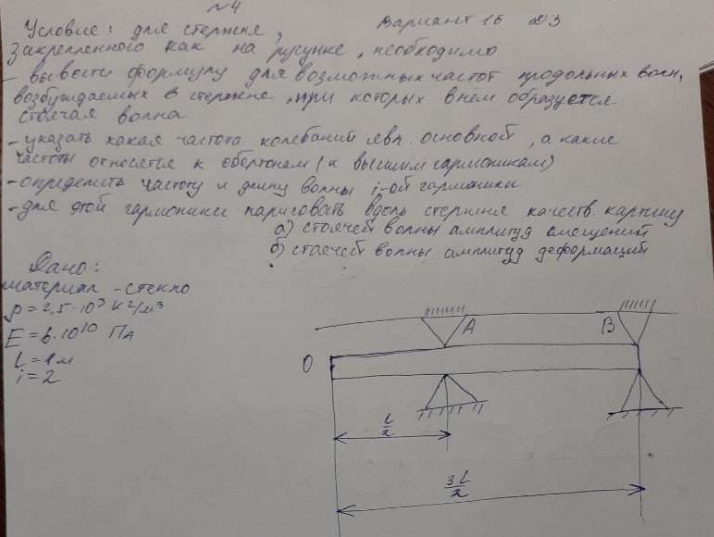 №4
Условие: для стержня, Вариант 16 ДЗ
Закрепленного как на русунке, необходимо
- вывести формулу для возможных частот продольных волн,
возбуждаемых в стержне, при которых в нём образуется
стоячая волна
- указать какая частота колебаний явл. основной, а какие
частоты относятся к обертонам (к высшим гармоникам)
- определить частоту и длину волны i-ой гармоники
- для этой гармоники нарисовать вдоль стержня качеств. картину
а) стоячей волны амплитуд смещений
б) стоячей волны амплитуд деформаций
Дано:
материал - стекло
ρ = 2,5·10³ кг/м³
E = 6·10¹⁰ Па
L = 1м
i = 2
A
B
O
L/2
3L/2